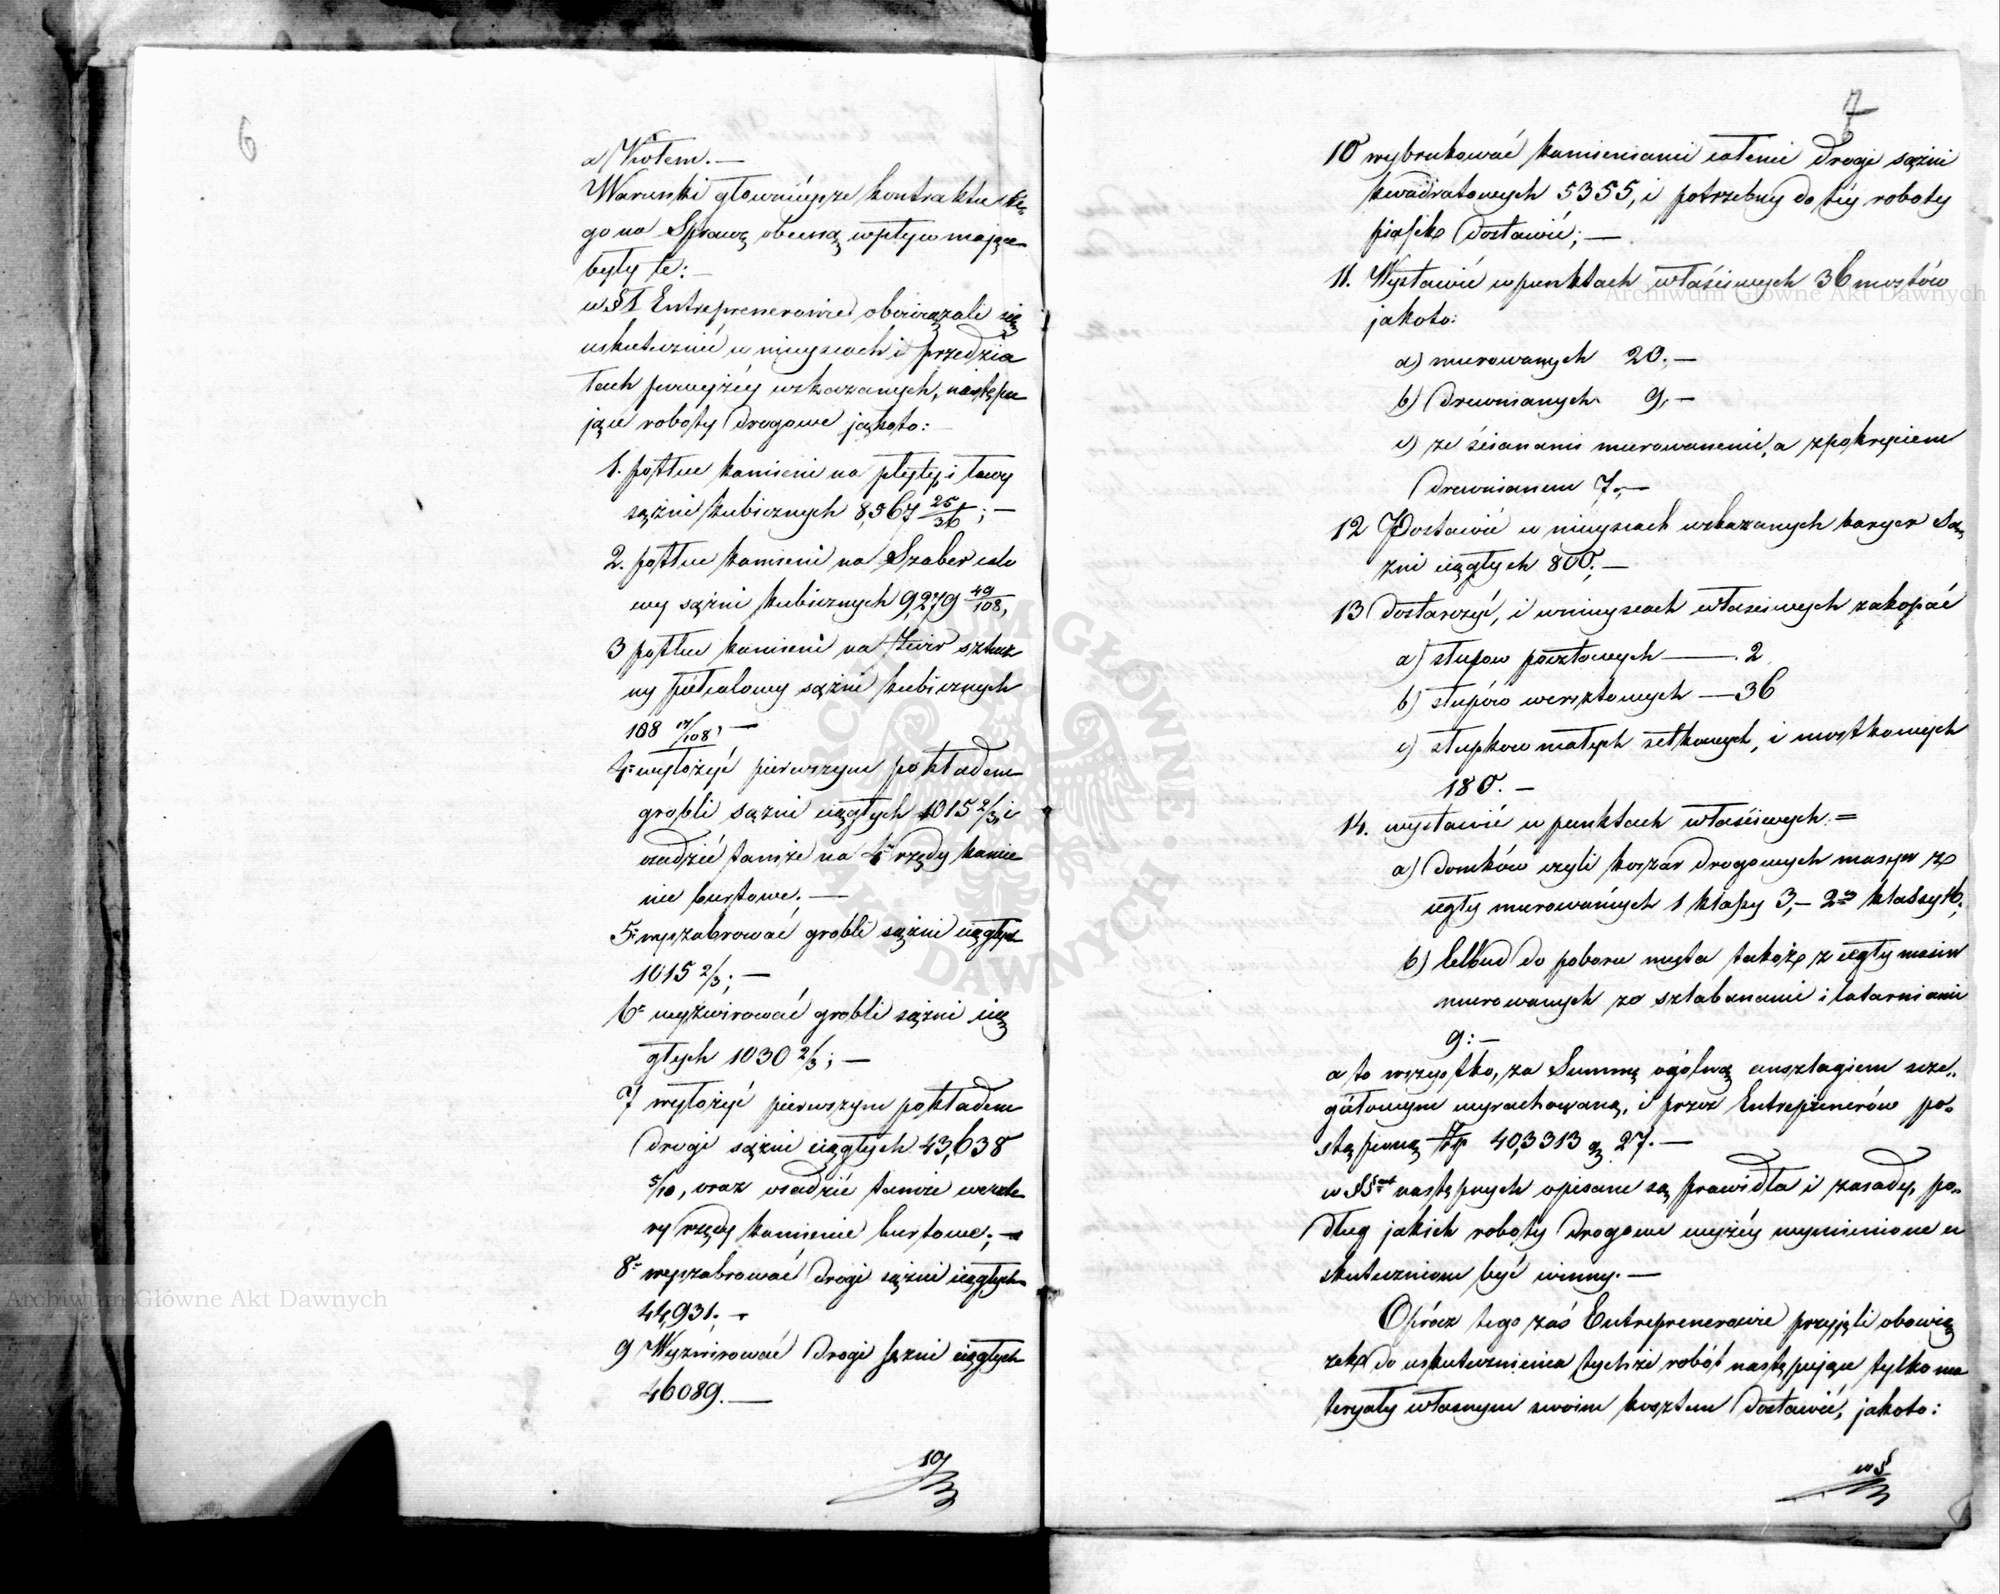 6
a/ Kołem. —
Warunki głowniéysze kontraktu te,
go na Sprawę obecną wpływ mające
były te: —
w § 1 Entreprenerowie obowiązali się
uskutecznić w mieyscach i przedzia
łach powyżéy wskazanych, nastepu
jące roboty drogowe jakoto: —
1. potłuc kamieni na płyty i ławy
sążni kubicznych 8,567 25/36; —
2. potłuc kamieni na Szaber calo
wy sążni kubicznych 9,279 49/108,
3 potłuc kamieni na żwir sztucz
ny półcalowy sążni kubicznych
108 17/108, —
4: wyłożyć pierwszym pokładem
grobli sążni ciągłych 1015 2/3, i
osadzić tamże na 4 rzędy kamie
nie burtowe. —
5: wyszabrować grobli sążni ciągłych
1015 2/3; —
6: wyżwirować grobli sążni cią
głych 1030 2/3; —
7 wyłożyć pierwszym pokładem
drogi sążni ciągłych 43,638
5/10, oraz osadzić tamże w czte
ry rzędy kamienie burtowe; —
8: wyszabrować drogi sążni ciągłych
44,931. —
9 Wyżwirować drogi sążni ciągłych
46089. —
10/
7
10 wybrukować kamieniami całemi drogi sążni
kwadratowych 5355, i potrzebny do téy roboty
piasek dostawić; —
11. Wystawić w punktach właściwych 36 mostów
jakoto:
a) murowanych 20. —
b) drewnianych 9, —
c) ze ścianami murowanemi, a z pokryciem
drewnianem 7. —
12 Postawić w mieyscach wskazanych baryer są,
żni ciągłych 800; —
13 dostarczyć, i w mieyscach właściwych zakopać
a) słupow pocztowych — 2
b) słupów wersztowych — 36
c) słupkow małych setkowych, i mostkowych
180. —
14. wystawić w punktach właściwych: =
a) domków czyli koszar drogowych massyw z
cegły murowanych 1 klassy 3, — 2ey klassy 16;
b) Celbud do poboru myta także z cegły massiw
murowanych ze szlabanami i latarniami
9: —
a to wszystko, za Summę ogólną anszlagiem szcze,,
gółowym wyrachowaną, i przez Entreprenerów po„
stąpioną złp 40,3313 gr 27. —
w §§ach następnych opisane są prawidła i zasady, po„
dług jakich roboty drogowe wyżéy wymienione u
skutecznione być winny. —
Oprócz tego zaś Entreprenerowie przyjęli obowią
zek do uskutecznienia tychże robót następujące tylko ma
teryały własnym swoim kosztem dostawić, jakoto:
w §
Archiwum Główne Akt Dawnych
Archiwum Główne Akt Dawnych
ARCHIWUM GŁÓWNE AKT DAWNYCH